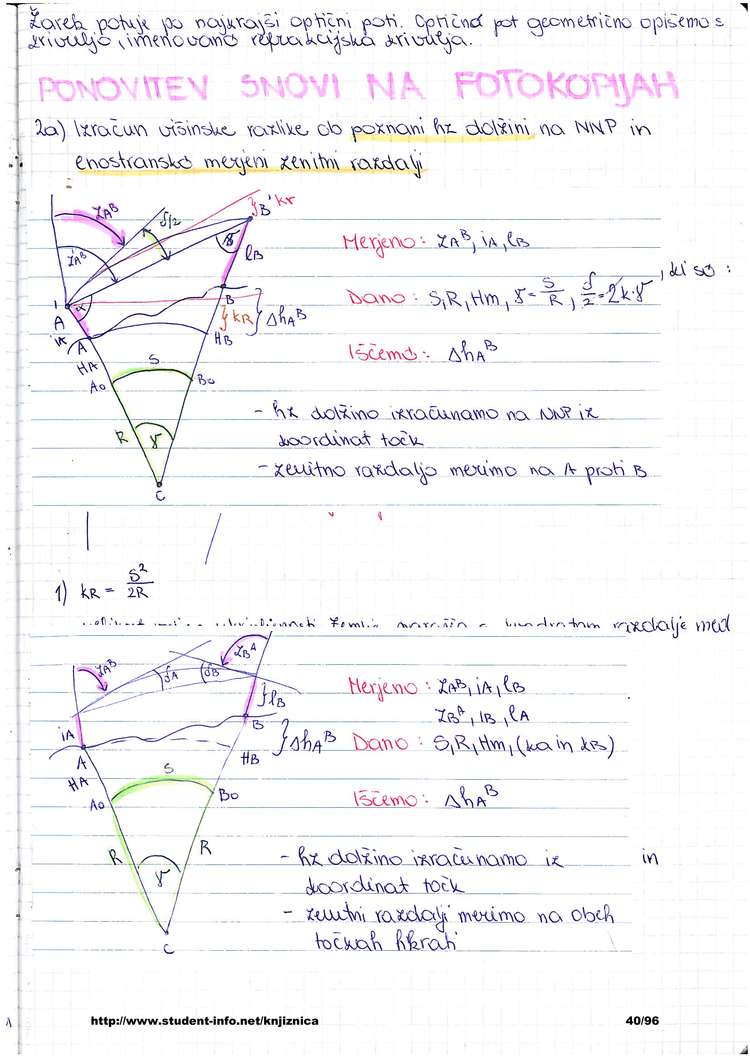 Žarek potuje po najkrajši optični poti. Optično pot geometrično opišemo s
krivuljo, imenovano refrakcijska krivulja.
PONOVITEV SNOVI NA FOTOKOPIJAH
2a) Izračun višinske razlike ob poznani hz dolžini na NNP in
enostransko merjeni zenitni razdalji
ZA^B
δ/2
B' kr
Z'A^B
γ
lB
Merjeno: ZA^B, iA, lB
, ki so :
1
α
B
Dano: S, R, Hm, γ = S/R, δ/2 = 2k·γ
A
iA
A
kR
ΔhA^B
HB
HA
S
Iščemo: ΔhA^B
A0
B0
R
γ
- hz dolžino izračunamo na NNP iz
koordinat točk
- zenitno razdaljo merimo na A proti B
C
1) kR = S²/2R
razdalje med
ZA^B
ZB^A
δA
δB
Merjeno: ZAB, iA, lB
lB
ZB^A, iB, lA
iA
B
ΔhA^B
Dano: S, R, Hm, (kA in kB)
A
HB
HA
S
Iščemo: ΔhA^B
A0
B0
R
R
γ
- hz dolžino izračunamo iz in
koordinat točk
- zenitni razdalji merimo na obeh
točkah hkrati
C
http://www.student-info.net/knjiznica 40/96